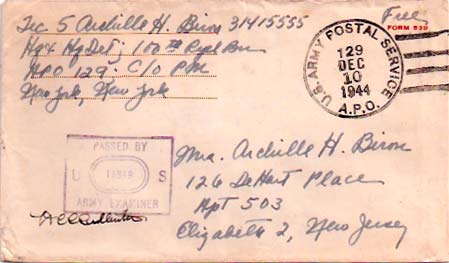 Tec 5 Archille H. Biron 31415555
Hq & Hq Det; 100th Repl Bn
APO 129 C/O P.M.
New York, New York
Free
FORM 539
U.S. ARMY POSTAL SERVICE
129
DEC
10
1944
A.P.O.
PASSED BY
U S
ARMY EXAMINER
Mrs. Archille H. Biron
126 DeHart Place
Apt 503
Elizabeth 2, New Jersey